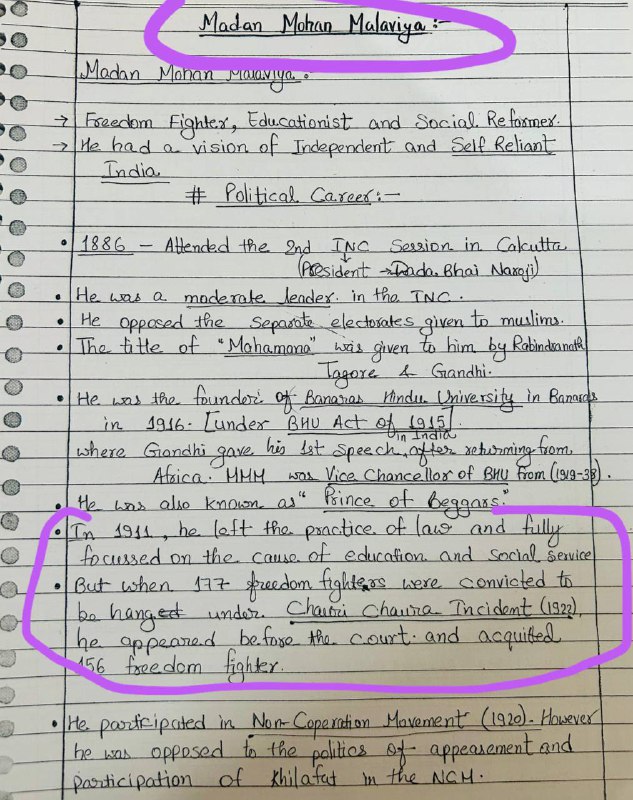 Madan Mohan Malaviya :-
Madan Mohan Malaviya :
→ Freedom Fighter, Educationist and Social Reformer.
→ He had a vision of Independent and Self Reliant
India
# Political Career :-
• 1886 - Attended the 2nd INC Session in Calcutta
(President → Dada Bhai Naroji)
• He was a moderate leader in the INC.
• He opposed the separate electorates given to muslims.
• The title of "Mahamana" was given to him by Rabindranath
Tagore & Gandhi.
• He was the founder of Banaras Hindu University in Banaras
in 1916. [under BHU Act of 1915]
in India
where Gandhi gave his 1st speech, after returning from
Africa. MMM was Vice Chancellor of BHU from (1919-38).
• He was also known as "Prince of Beggars."
• In 1911, he left the practice of law and fully
focussed on the cause of education and social service
• But when 177 freedom fighters were convicted to
be hanged under Chauri Chaura Incident (1922),
he appeared before the court and acquitted
156 freedom fighter.
• He participated in Non-Coperation Movement (1920). However
he was opposed to the politics of appeasement and
participation of Khilafat in the NCM.